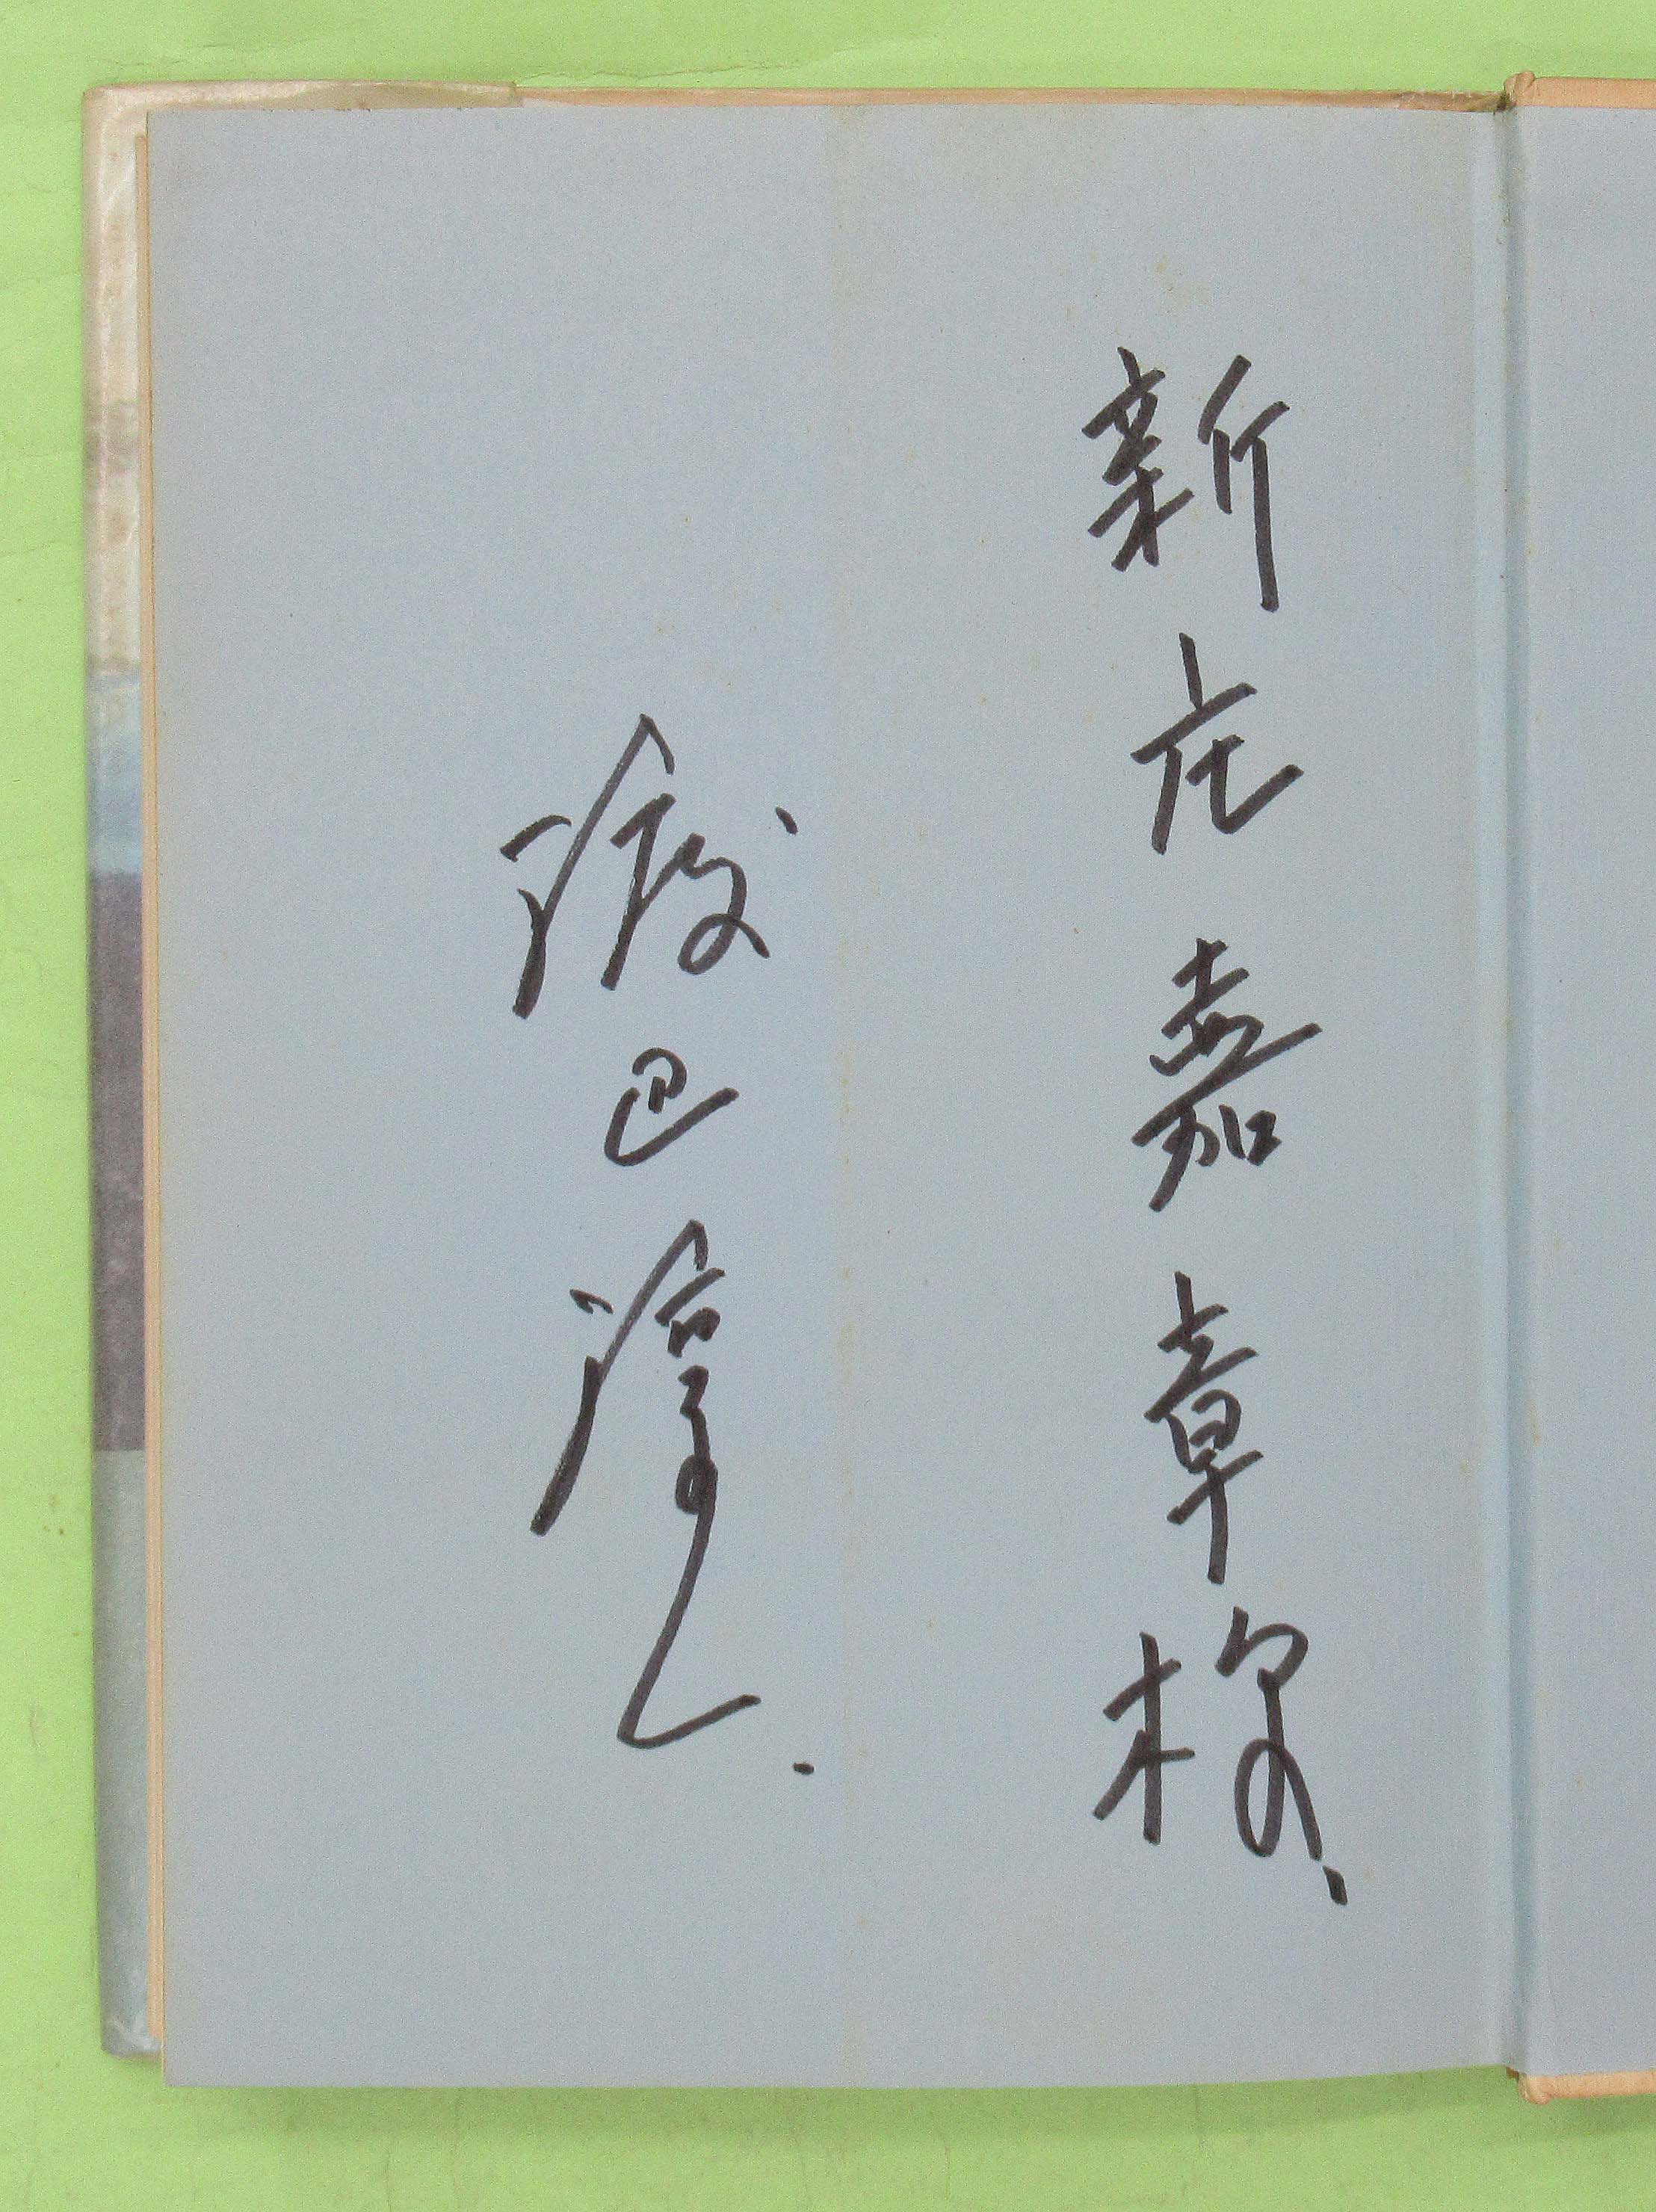 新庄嘉章様
渡辺淳一